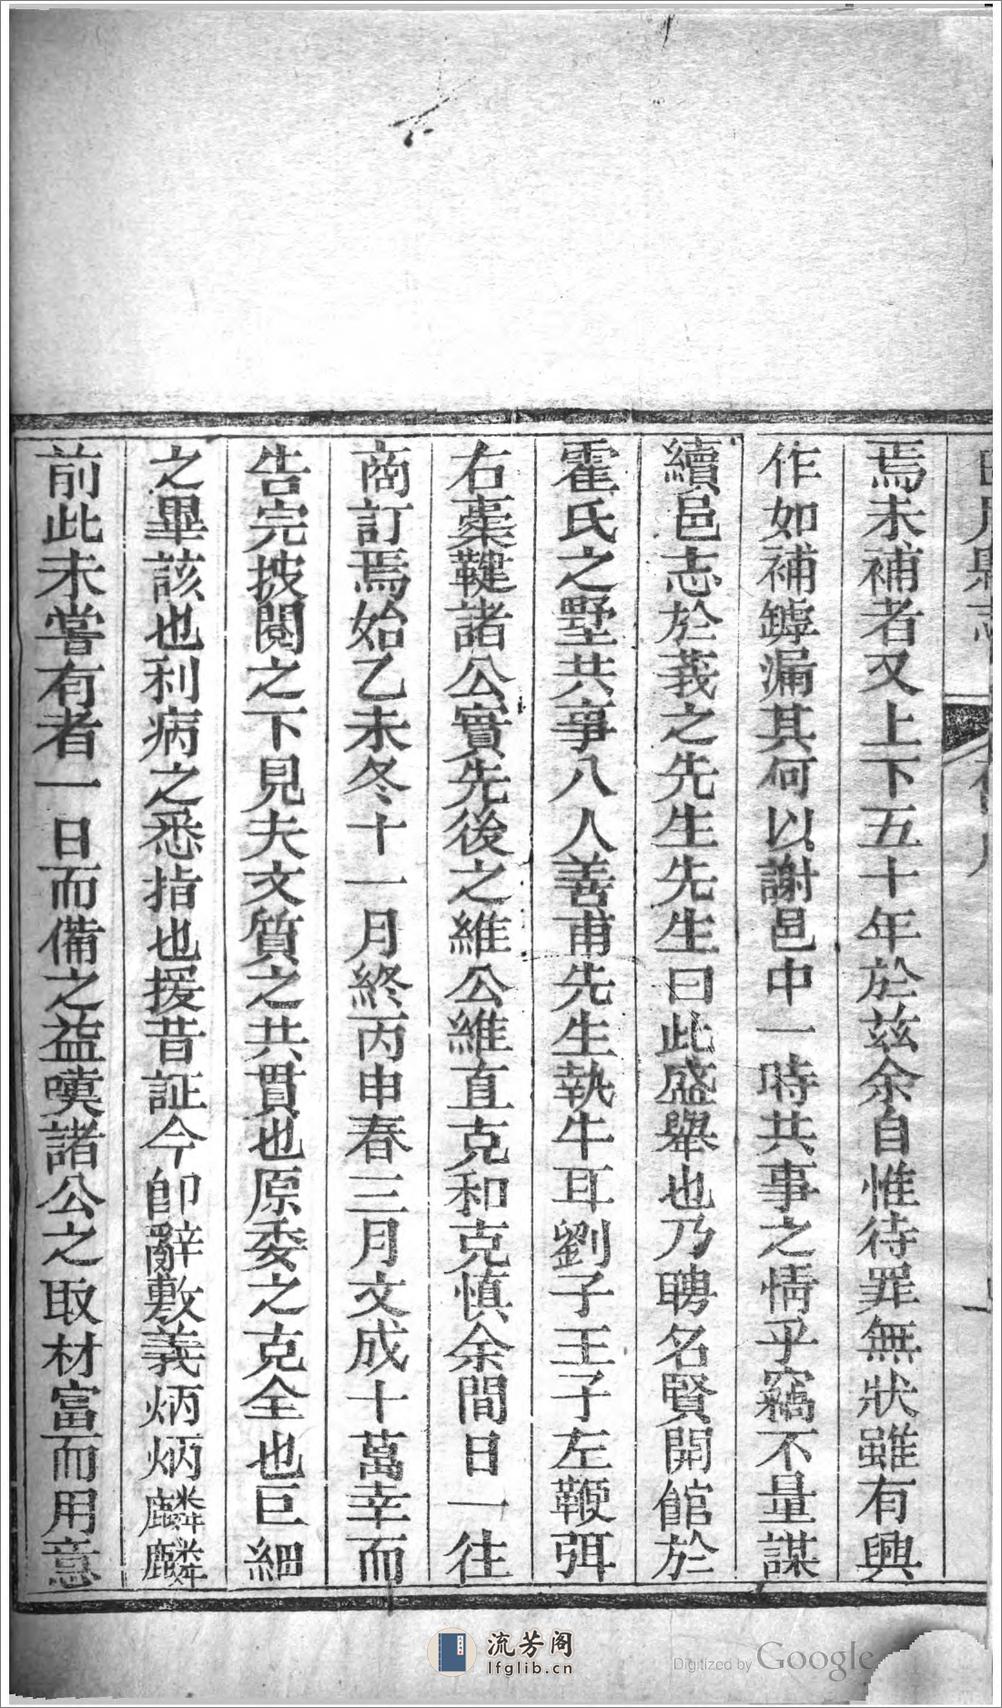 焉未補者又上下五十年於茲余自惟待罪無狀雖有興
作如補罅漏其何以謝邑中一時共事之情乎竊不量謀
續邑志於莪之先生先生曰此盛舉也乃聘名賢開館於
霍氏之墅共事八人善甫先生執牛耳劉子王子左鞭弭
右櫜鞬諸公實先後之維公維直克和克慎余間日一往
商訂焉始乙未冬十一月終丙申春三月文成十萬幸而
告完披閱之下見夫文質之共貫也原委之克全也巨細
之畢該也利病之悉指也援昔証今卽辭敷義炳炳麟麟
前此未嘗有者一日而備之益嘆諸公之取材富而用意
流芳阁
lfglib.cn
Digitized by Google